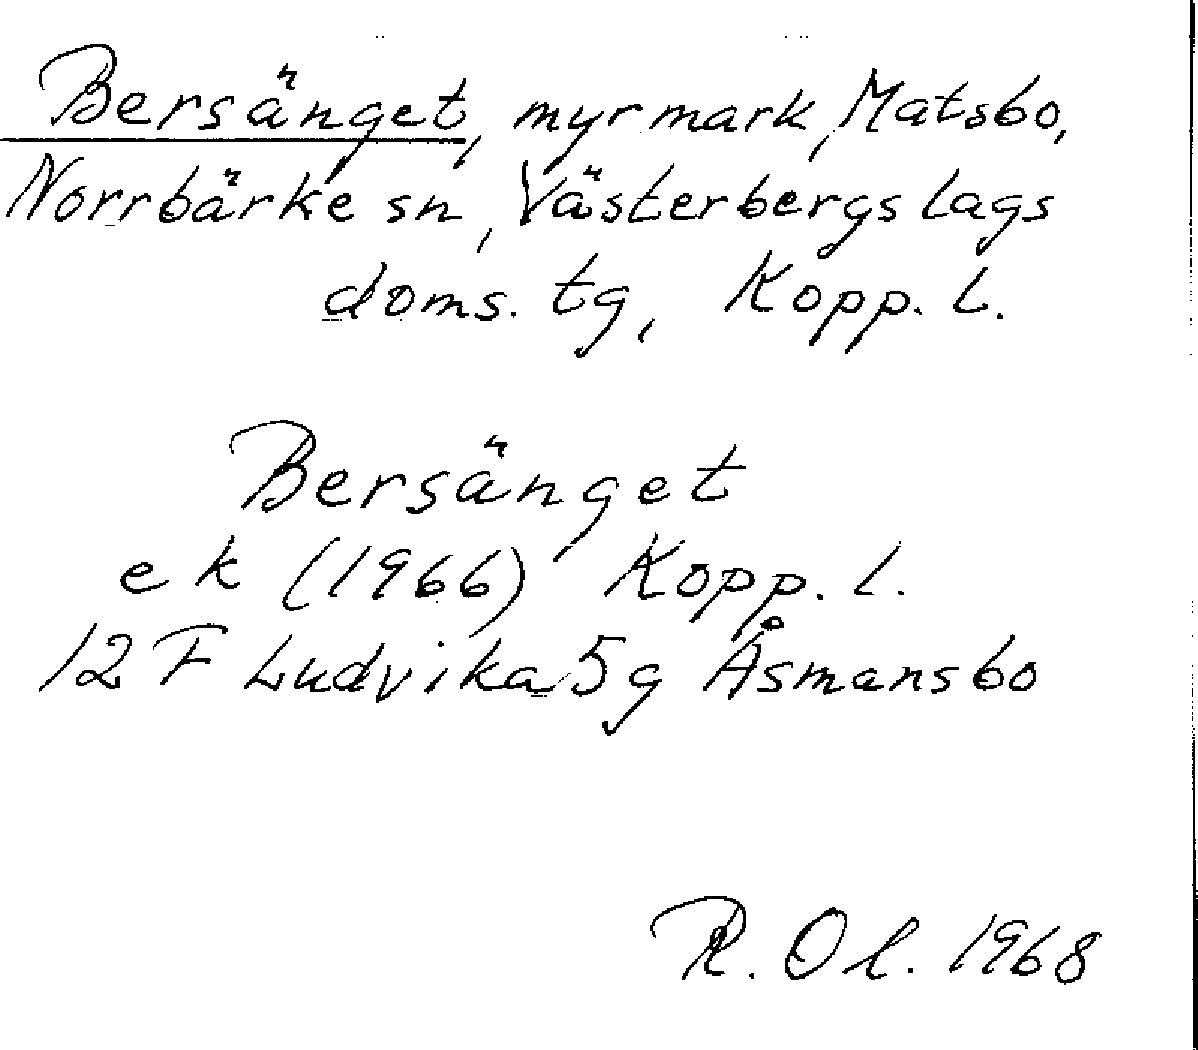 Bersänget, myrmark, Matsbo,
Norrbärke sn, Västerbergslags
doms. tg, Kopp. l.
Bersänget
ek (1966) Kopp. l.
12 F Ludvika 5g Åsmansbo
R. Ol. 1968